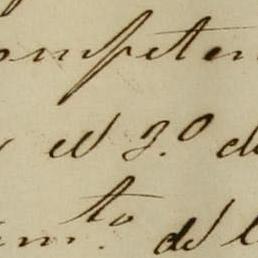 ompeten
el 3.º de
m.to de l